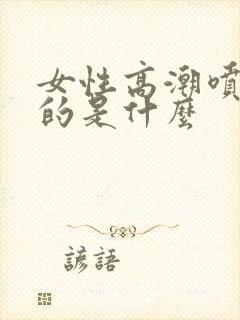 女性高潮噴
的是什麼
諺語